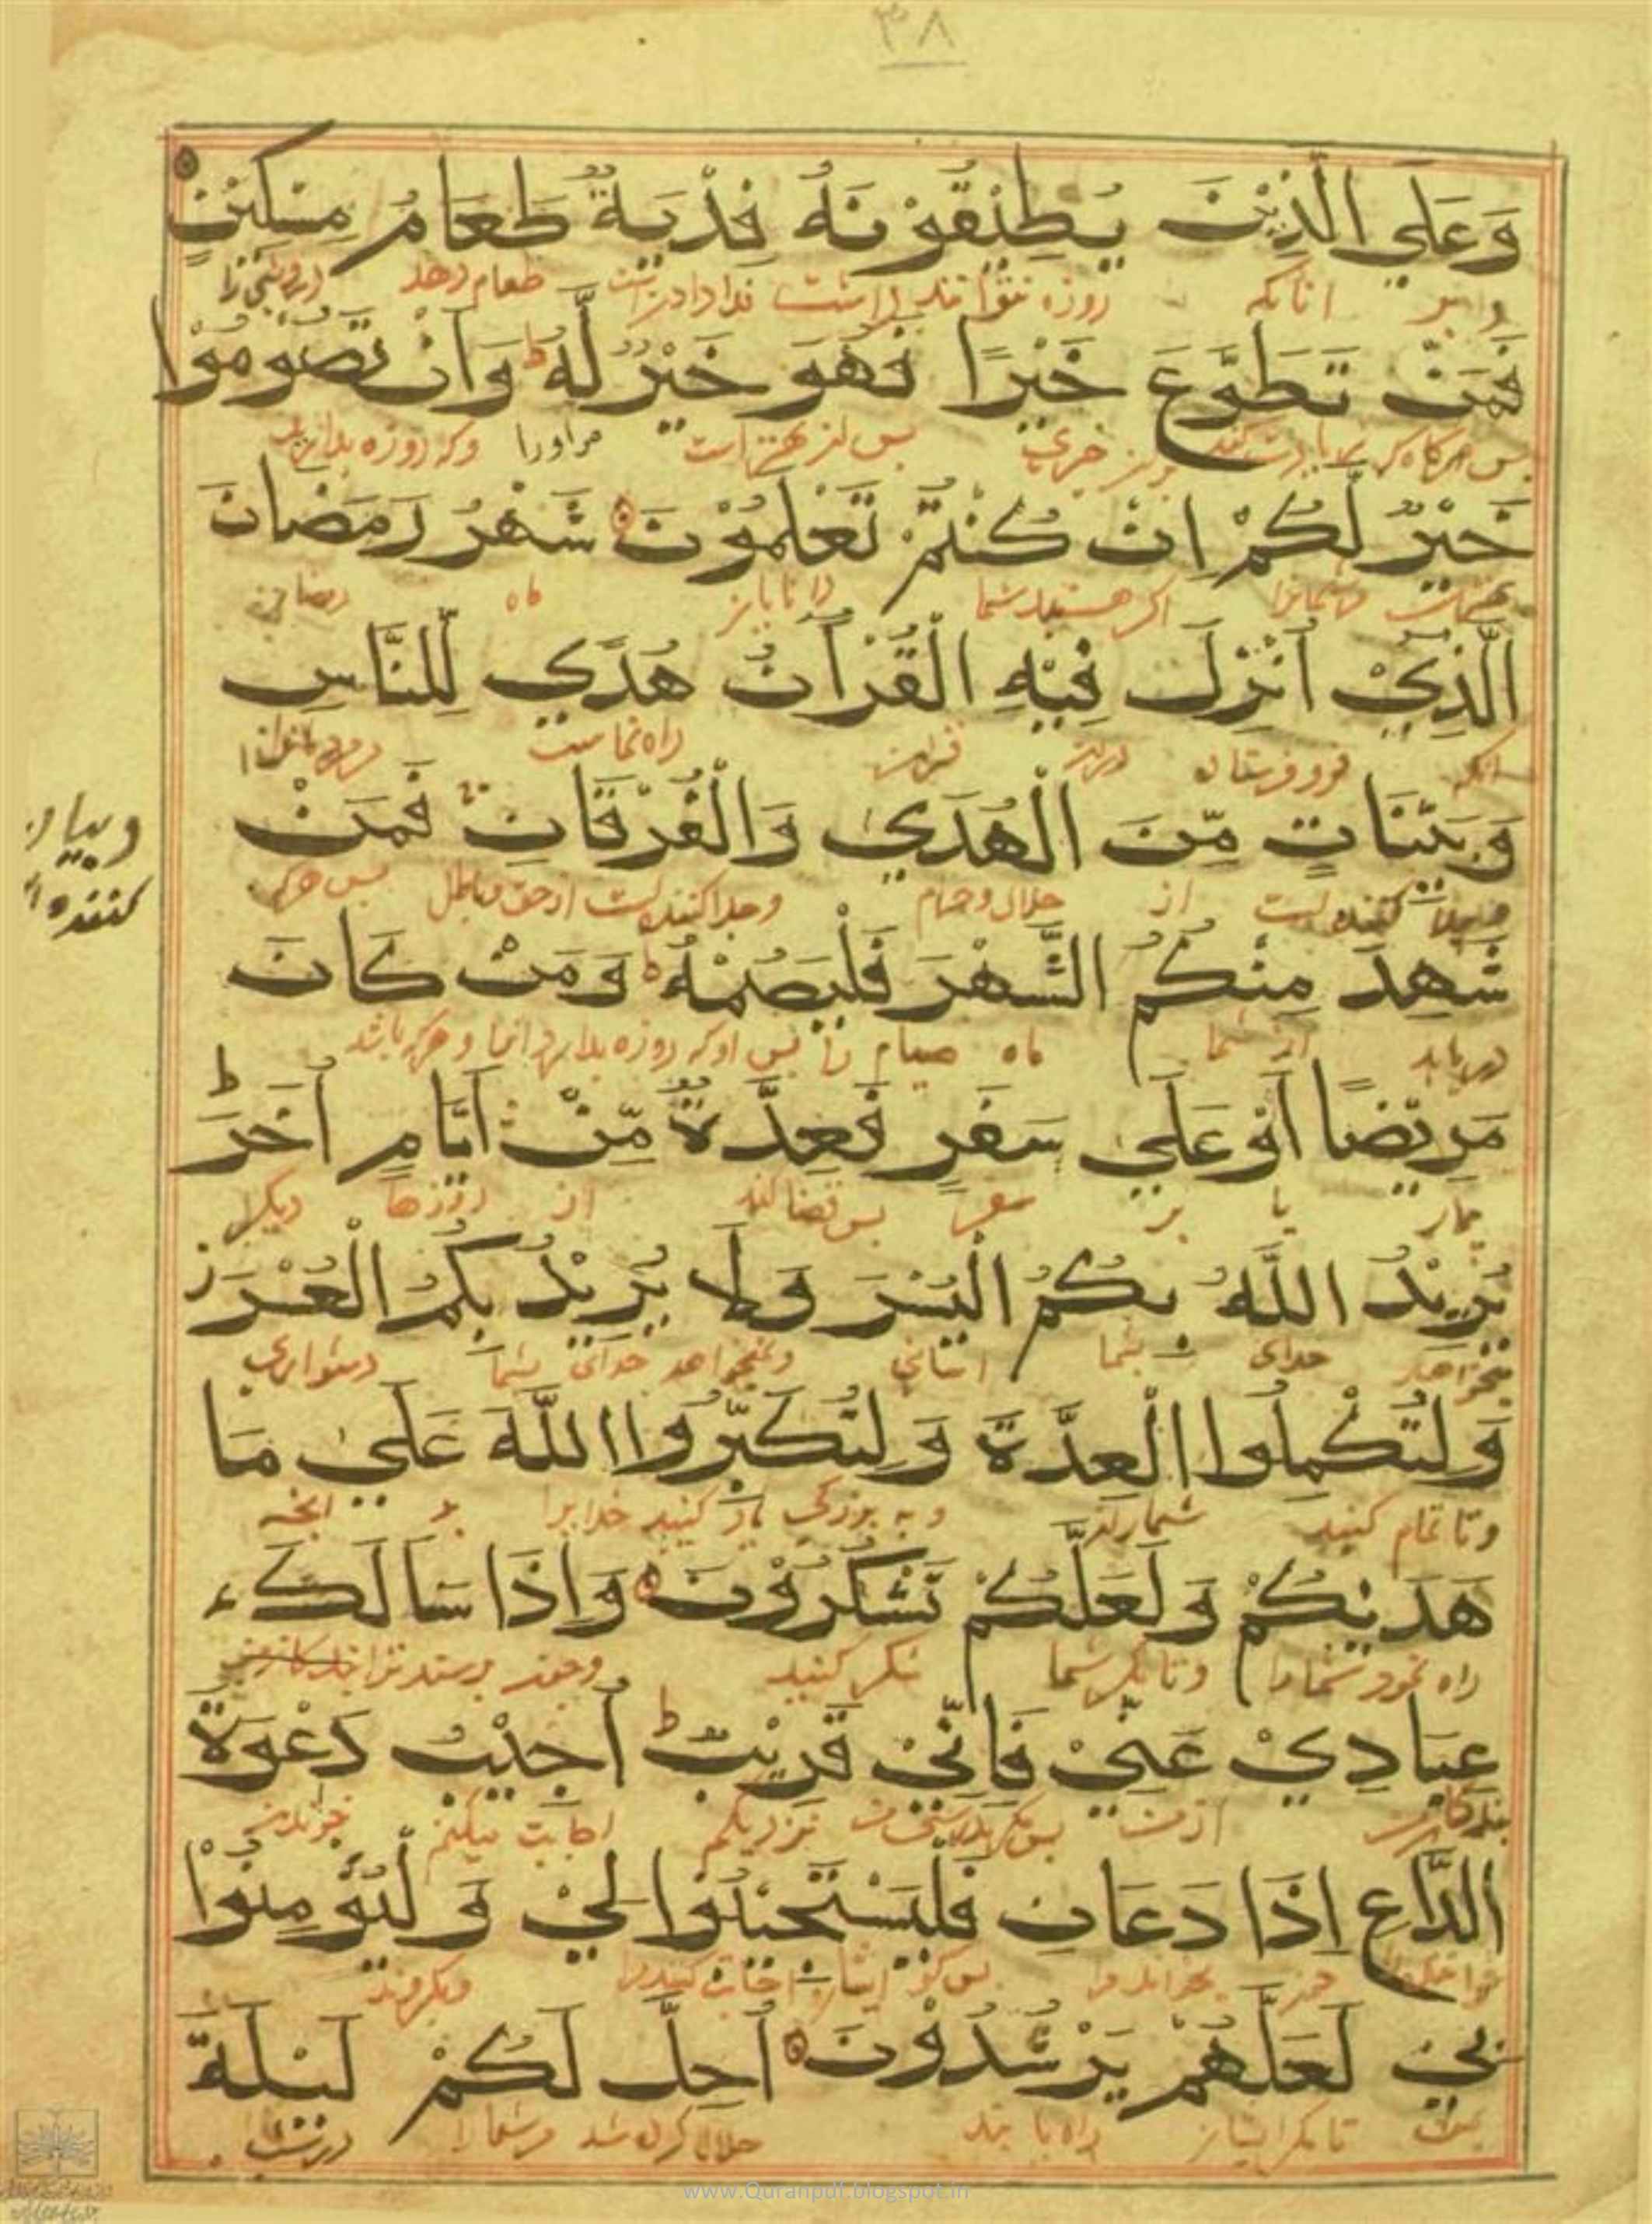 ۳۸
وَعَلَي الَّذِيْنَ يُطِيْقُوْنَهُ فِدْيَةٌ طَعَامُ مِسْكِيْنٍ
و بر انانكه روزه نتوانند داشت فدا دادن است طعام دهد درويشي را
فَمَنْ تَطَوَّعَ خَيْرًا فَهُوَ خَيْرٌ لَّهُ ط وَاَنْ تَصُوْمُوْا
بس بهتر است مراورا وكه روزه بداريد
خَيْرٌ لَّكُمْ اِنْ كُنْتُمْ تَعْلَمُوْنَ شَهْرُ رَمَضَانَ
اكر هستيد شما دانايان ماه رمضان
الَّذِيْ اُنْزِلَ فِيْهِ الْقُرْآنُ هُدًي لِلنَّاسِ
انكه فرو فرستاده دران قران راه نماست
وَبَيِّنَاتٍ مِّنَ الْهُدَي وَالْفُرْقَانِ فَمَنْ
وبيان
كننده
كننده است از حلال و حرام وجدا كننده است از حق و باطل بس هركه
شَهِدَ مِنْكُمُ الشَّهْرَ فَلْيَصُمْهُ ط وَمَنْ كَانَ
دريابد از شما ماه صيام را بس اوكه روزه بدارد انرا و هركه باشد
مَرِيْضًا اَوْ عَلَي سَفَرٍ فَعِدَّةٌ مِّنْ اَيَّامٍ اُخَرَ ط
بيمار يا بر سفر بس قضا كند از روزها ديكر
يُرِيْدُ اللَّهُ بِكُمُ الْيُسْرَ وَلَا يُرِيْدُ بِكُمُ الْعُسْرَ ز
ميخواهد خداي بشما اساني ونميخواهد خداي بشما دشواري
وَلِتُكْمِلُوا الْعِدَّةَ وَلِتُكَبِّرُوا اللَّهَ عَلَي مَا
وتا تمام كنيد شمار را و به بزركي ياد كنيد خدايرا بر انچه
هَدَيكُمْ وَلَعَلَّكُمْ تَشْكُرُوْنَ وَاِذَا سَاَلَكَ
راه نمود شمارا وتا مكر شما شكر كنيد وچون پرسند ترا بندكان من
عِبَادِيْ عَنِّيْ فَاِنِّيْ قَرِيْبٌ ط اُجِيْبُ دَعْوَةَ
بندكان من از من نزديكم اجابت ميكنم خواندن
الدَّاعِ اِذَا دَعَانِ فَلْيَسْتَجِيْبُوْا لِيْ وَلْيُؤْمِنُوْا
چون بخواند مرا بس كو ايشان اجابت كنيد مرا وبكروند
بِيْ لَعَلَّهُمْ يَرْشُدُوْنَ اُحِلَّ لَكُمْ لَيْلَةَ
بمن تا مكر ايشان راه يابند حلال كرده شد مر شمارا در شب
www.Quranpdf.blogspot.in